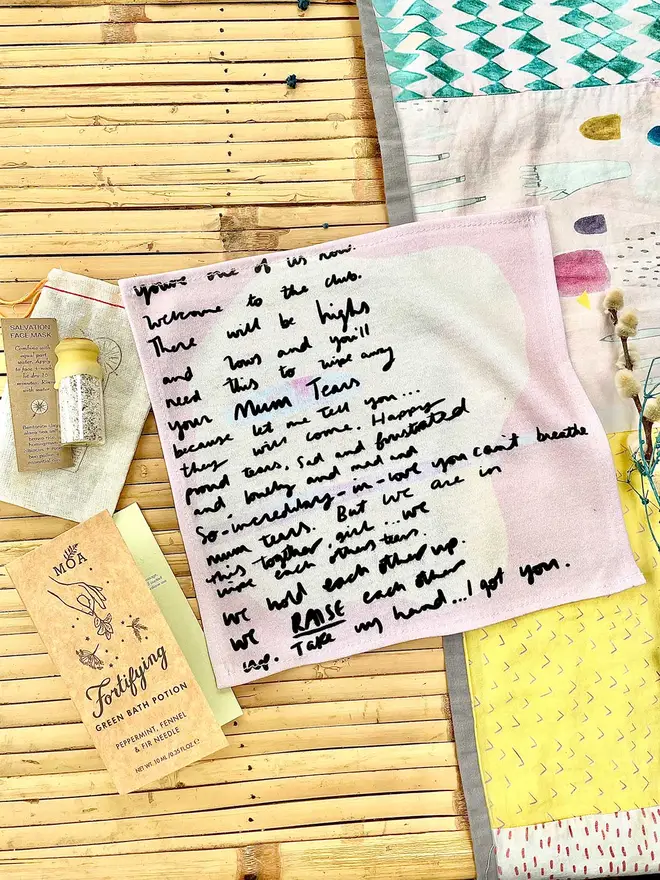 youre one of us now.
Welcome to the club.
There will be highs
and lows and you'll
need this to wipe away
your Mum Tears
because let me tell you...
they will come. Happy
proud tears, Sad and frustrated
and lonely and mad and
So-incredibly-in-love you can't breathe
mum tears. But we are in
this together, girl ...we
wipe each others tears.
we hold each other up.
we RAISE each other
up. Take my hand...I got you.
SALVATION
FACE MASK
Combine with
equal part
water. Apply
with water.
MOA
Fortifying
GREEN BATH POTION
PEPPERMINT, FENNEL
& FIR NEEDLE
NET WT. 10 ML/0.35 FL.OZ ℮